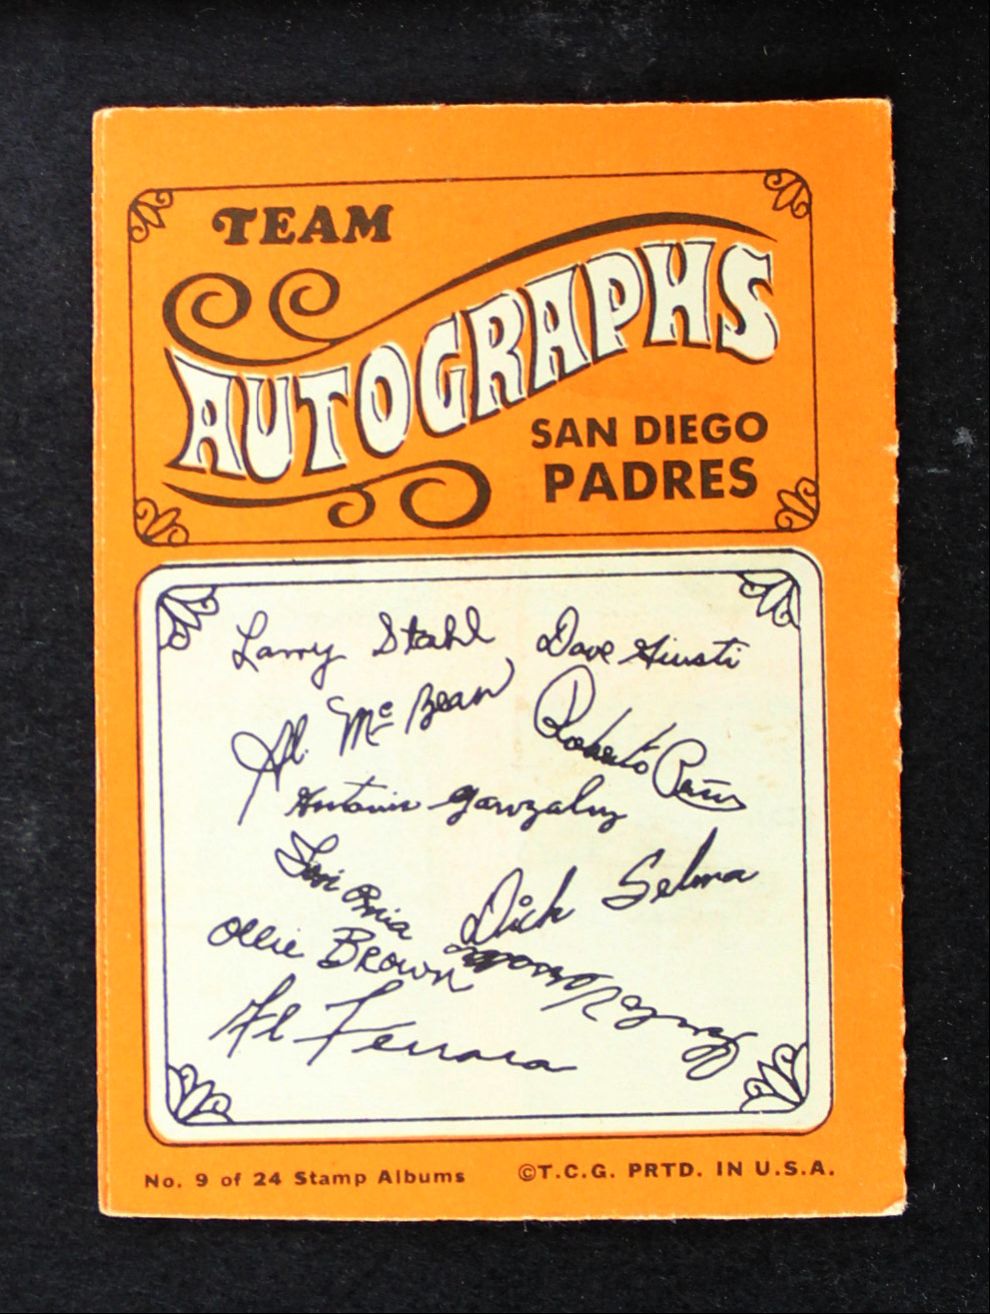 TEAM
AUTOGRAPHS
SAN DIEGO
PADRES
Larry Stahl
Dave Giusti
Al. McBean
Roberto Peña
Antonio Gonzalez
Dick Selma
Ollie Brown
Al Ferrara
No. 9 of 24 Stamp Albums
©T.C.G. PRTD. IN U.S.A.